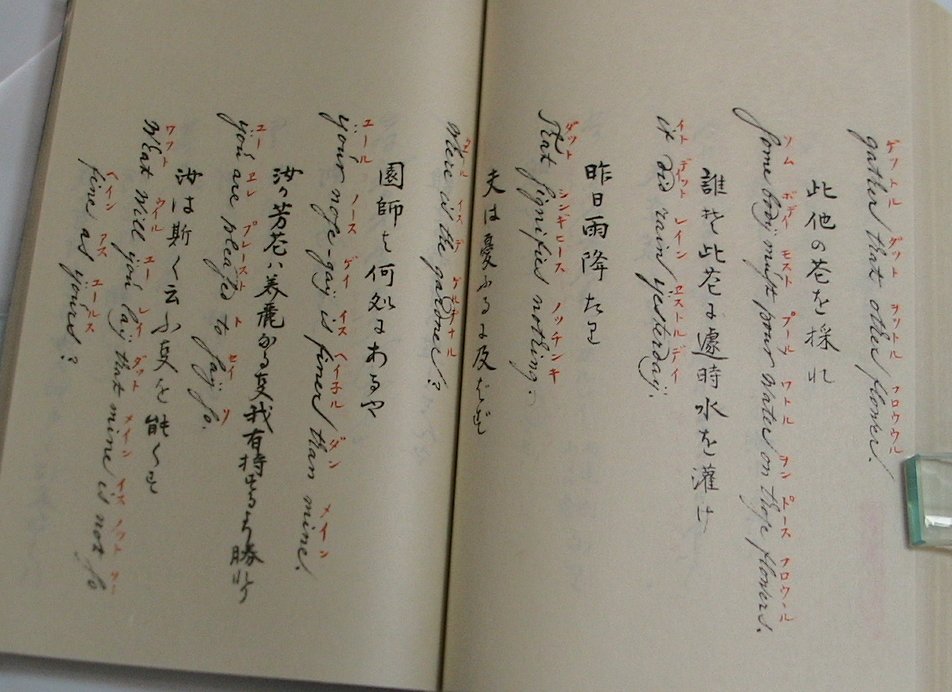 ゲットル ダット ヲットル フロウウル
gather that other flower.
此他の花を採れ
ソム ボディー モスト プール ワトル ヲン ドース フロウール
ſome body muſt pour water on thoſe flowers.
誰ぞ此花に遽時水を灌け
イト デット レイン ヱストルデイ
it did rain yesterday.
昨日雨降たり
ダット シンギヒース ノッチンキ
that ſignifies nothing.
夫は憂ふるに及ばず
イス デ ゲルデナル
where is the gardner?
園師は何処にあるや
ユール ノース ゲイ イス ヘイネル ダン メイン
your noſe-gay is finer than mine.
汝の芳花は美麗なる事我有持するより勝れり
ユー ヱレ プレースト ト セイ ソ
you are pleaſed to ſay ſo.
汝は斯く云ふ事を能くす
ワット ウイル ユー レイ ダット メイン イス ノット ソー
What will you lay that mine is not ſo
ヘイン アス ユールス
fine as yours?